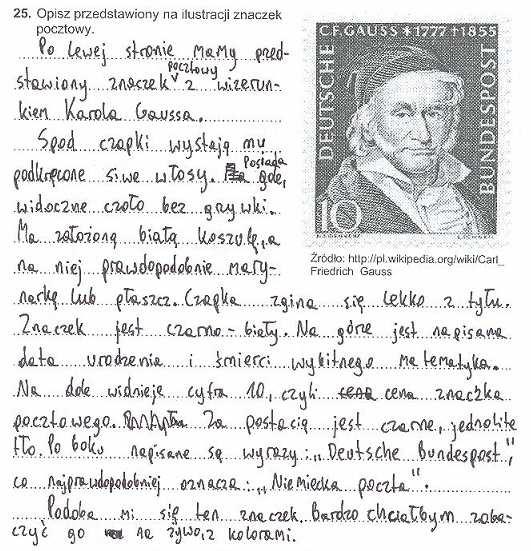 25. Opisz przedstawiony na ilustracji znaczek
pocztowy.
Po lewej stronie mamy przed-
stawiony znaczek pocztowy z wizerun-
kiem Karola Gaussa.
Spod czapki wystają mu
podkręcone siwe włosy. Posiada gołe,
widoczne czoło bez grzywki.
Ma założoną białą koszulę, a
na niej prawdopodobnie mary-
narkę lub płaszcz. Czapka zgina się lekko z tyłu.
Znaczek jest czarno-biały. Na górze jest napisana
data urodzenia i śmierci wybitnego matematyka.
Na dole widnieje cyfra 10, czyli cena znaczka
pocztowego. Za postacią jest czarne, jednolite
tło. Po boku napisane są wyrazy: „Deutsche Bundespost",
co najprawdopodobniej oznacza: „Niemiecka poczta".
Podoba mi się ten znaczek. Bardzo chciałbym zoba-
czyć go na żywo, z kolorami.
C.F. GAUSS * 1777 † 1855
DEUTSCHE
BUNDESPOST
10
Źródło: http://pl.wikipedia.org/wiki/Carl_
Friedrich_Gauss